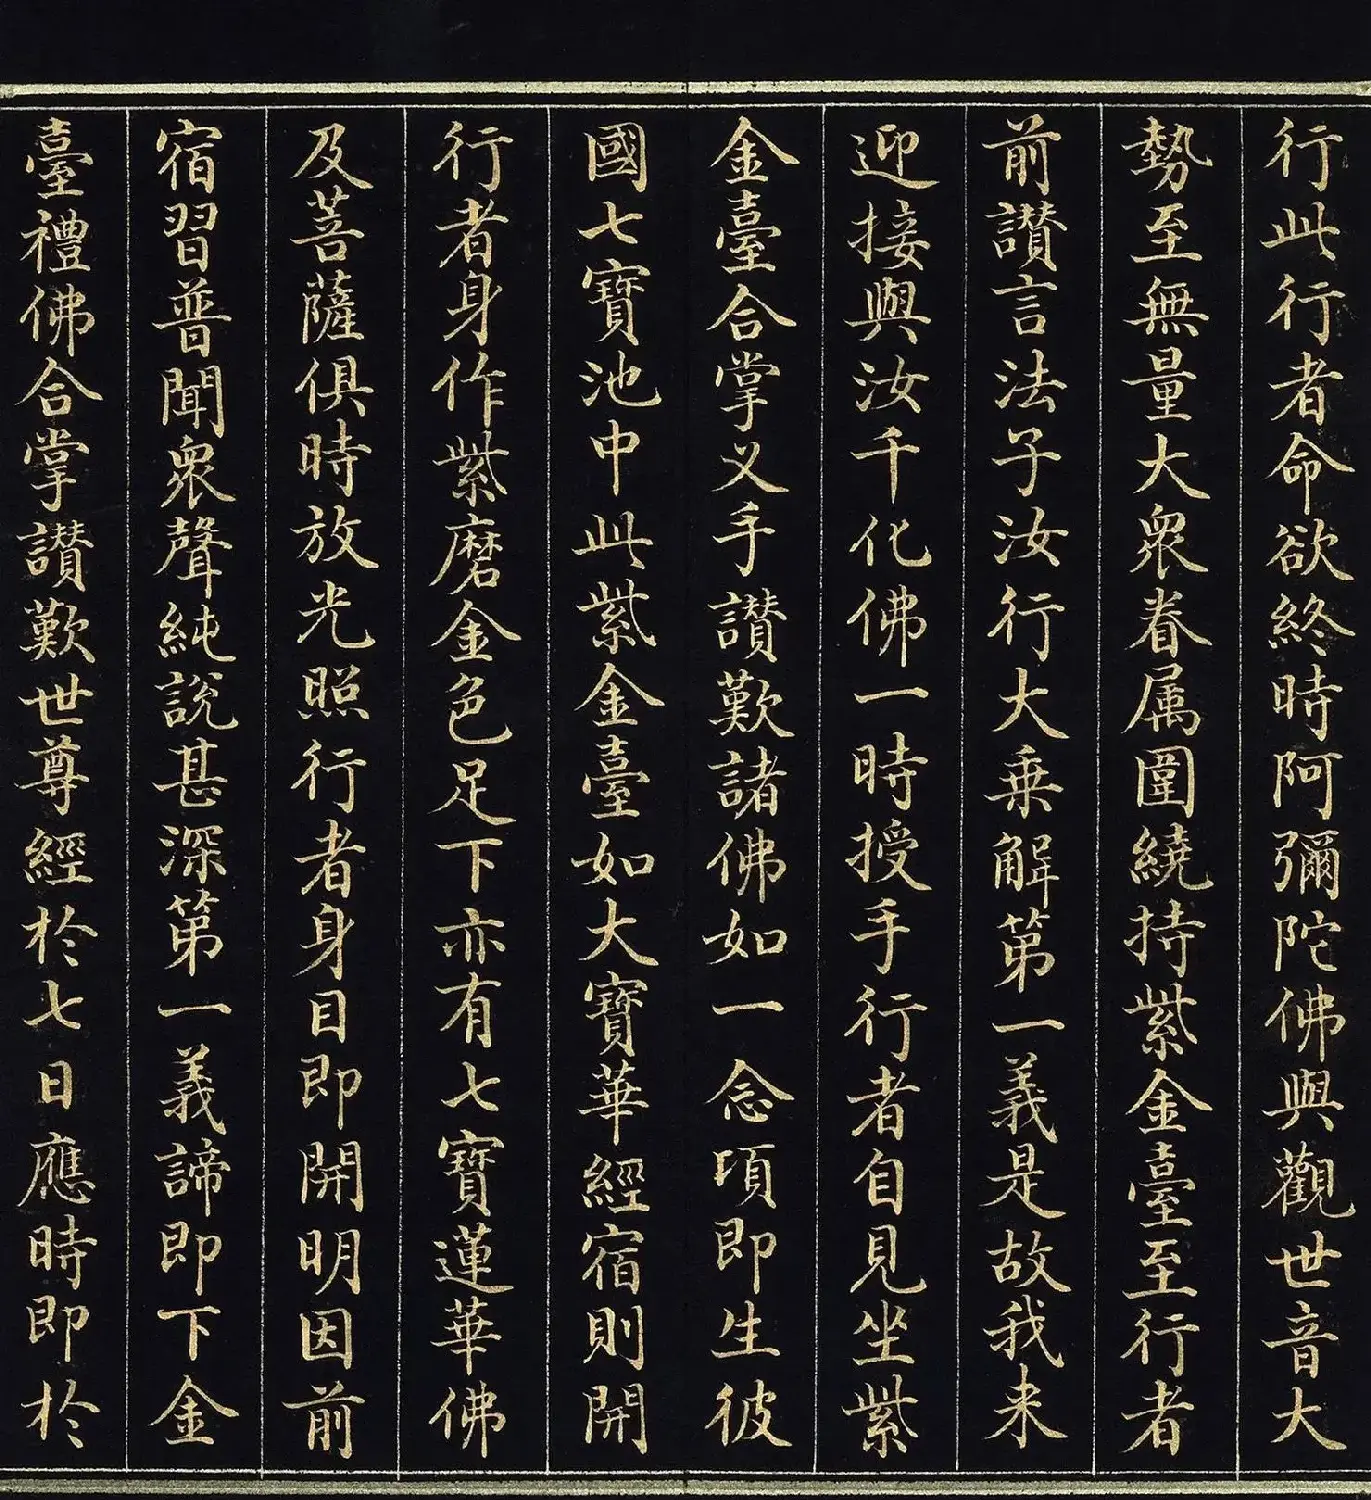 行此行者命欲終時阿彌陀佛與觀世音大
勢至無量大衆眷属圍繞持紫金臺至行者
前讃言法子汝行大乗解第一義是故我来
迎接與汝千化佛一時授手行者自見坐紫
金臺合掌叉手讃歎諸佛如一念項即生彼
國七寳池中此紫金臺如大寳華經宿則開
行者身作紫磨金色足下亦有七寳蓮華佛
及菩薩俱時放光照行者身目即開明因前
宿習普聞衆聲純說甚深第一義諦即下金
臺禮佛合掌讃歎世尊經於七日應時即於